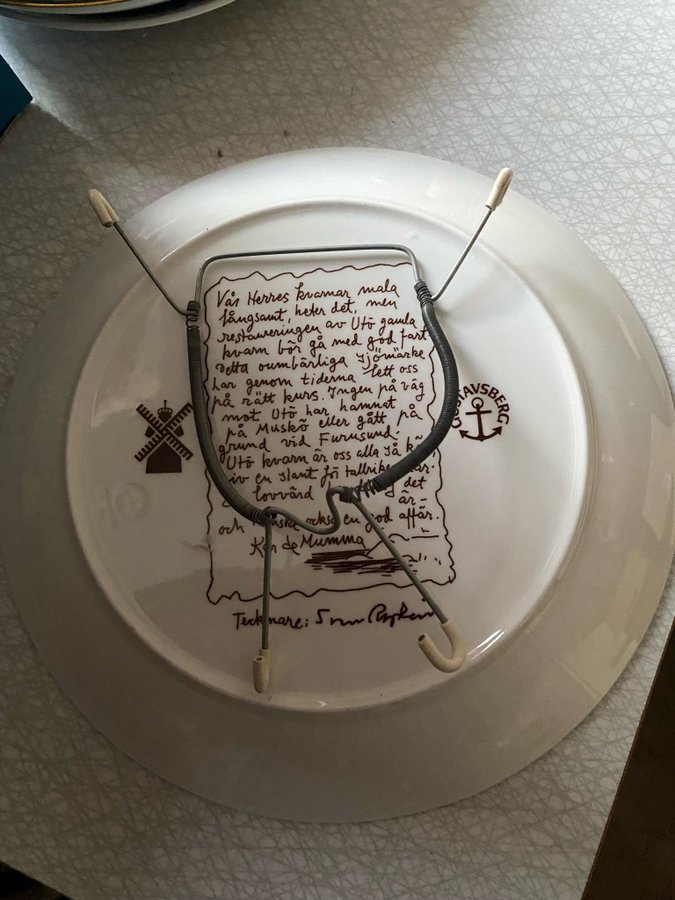 Vår Herres kvarnar mala
långsamt, heter det, men
restaureringen av Utö gamla
kvarn bör gå med god fart
Detta oumbärliga sjömärke
har genom tiderna lett oss
på rätt kurs. Ingen på väg
mot Utö har hamnat
på Muskö eller gått på
grund vid Furusund.
Utö kvarn är oss alla så
en slant för
lovvärd det
är-
och också en god affär.
Kar de Mumma
Tecknare: Sven
GUSTAVSBERG